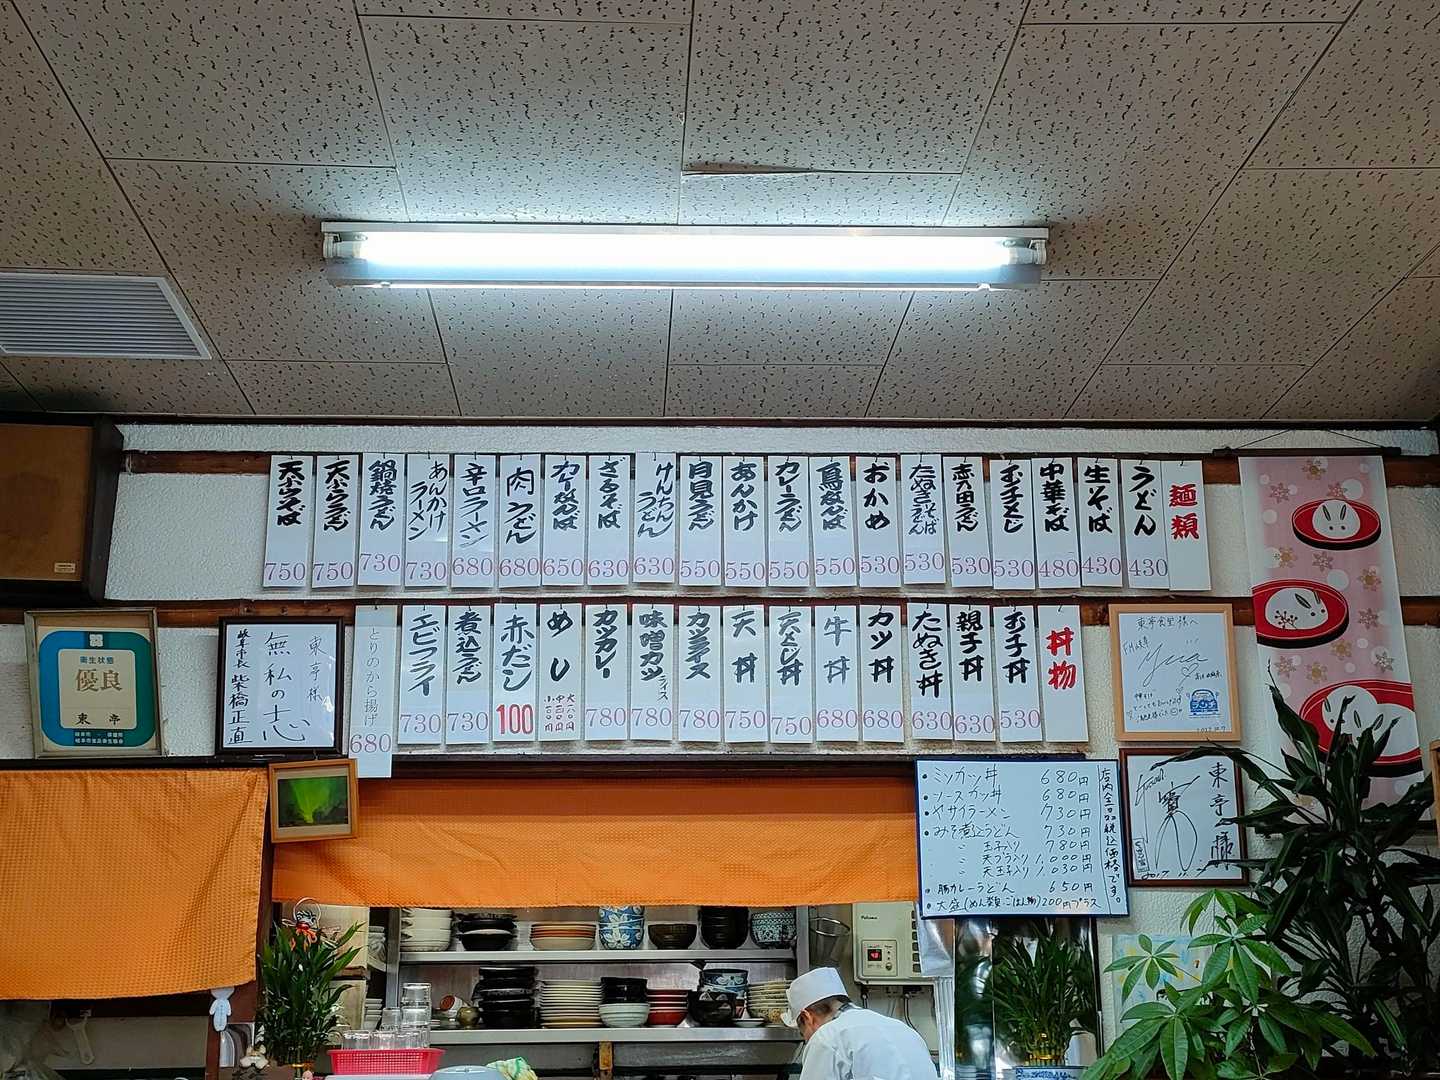 麺類
うどん
430
生そば
430
中華そば
480
玉子とじ
530
志の田うどん
530
たぬきそば
うどん
530
おかめ
530
鳥なんば
550
カレーうどん
550
あんかけ
550
月見うどん
550
けんちん
うどん
630
ざるそば
630
カレーなんば
650
肉うどん
680
辛口ラーメン
680
あんかけ
ラーメン
730
鍋焼うどん
730
天ぷらうどん
750
天ぷらそば
750
丼物
玉子丼
530
親子丼
630
たぬき丼
630
カツ丼
680
牛丼
680
天とじ丼
750
天丼
750
カツライス
780
味噌カツ
ライス
780
カツカレー
780
めし
赤だシ
100
煮込うどん
730
エビフライ
730
とりのから揚げ
680
衛生状態
優良
東亭
東亭様
無私の志
岐阜市長 柴橋正直
東亭様
2017.11.
店内全品税込価格です。
・ミソカツ丼 680円
・ソースカツ丼 680円
・ヤサイラーメン 730円
・みそ煮込うどん 730円
〃 玉子入り 780円
〃 天プラ入り 1,000円
〃 天玉子入り 1,030円
・豚カレーうどん 650円
・大盛(めん類・ごはん物)200円プラス
Paloma